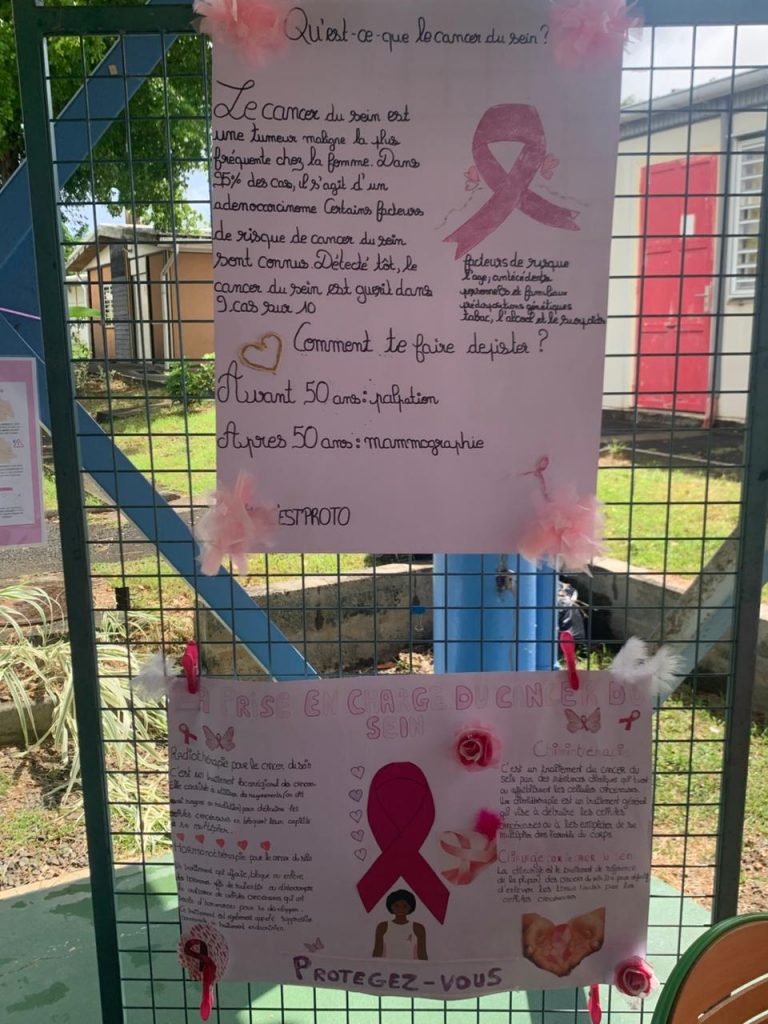 Qu'est-ce-que le cancer du sein?
Le cancer du sein est
une tumeur maligne la plus
fréquente chez la femme. Dans
95% des cas, il s'agit d'un
adenocarcinome Certains facteurs
de risque de cancer du sein
sont connus Détecté tôt, le
cancer du sein est guerit dans
9 cas sur 10
facteurs de risque
l'age, antécédents
personnels et familiaux
prédispositions génétiques
tabac, l'alcool et le surpoids
Comment te faire depister?
Avant 50 ans: palpation
Apres 50 ans: mammographie
EST PROTO
LA PRISE EN CHARGE DU CANCER DU
SEIN
Radiothérapie pour le cancer du sein
C'est un traitement locorégional des cancers
cellules cancéreuses en bloquant leur capacité
à se multiplier.
Hormonothérapie pour le cancer du sein
Le traitement est également appelé
Chimiothérapie
C'est un traitement du cancer du
sein par des substances chimiques qui tuent
ou affaiblissent les cellules cancéreuses.
Une chimiothérapie est un traitement général
qui vise à détruire les cellules
cancéreuses ou à les empêcher de se
multiplier dans l'ensemble du corps.
La chirurgie est le traitement de référence
de la plupart des cancers du sein
d'enlever les tissus touchés par les
cellules cancéreuses
PROTEGEZ-VOUS